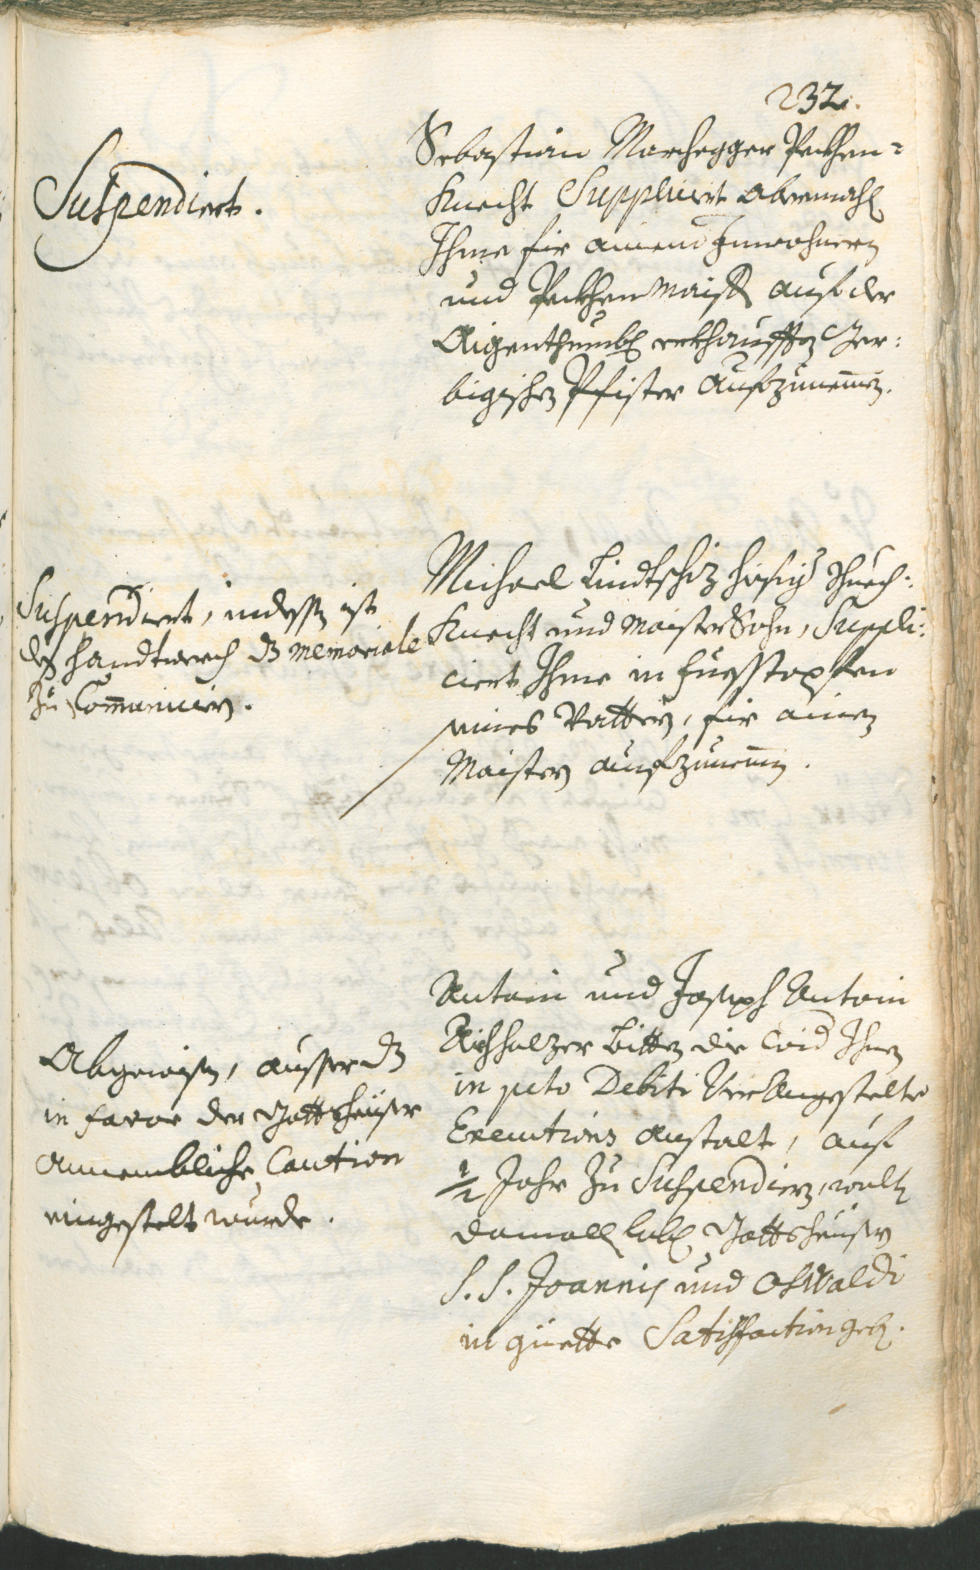 232.
Suspendiert.
Sebastian Marchegger Pekhen=
Knecht Suppliciert abermahl
Ihme für ainen Inwohnern
und Pekhenmaistr auf der
Aigenthumbl erkhaufften
bigischen Pfister aufzunemen.
Suspendiert, indessen ist
des Handtwerch dz memoriale
zu Communiciern.
Michael Lindtschiz hiesig
Knecht und Maisters Sohn, Suppli:
ciert Ihme in Fuesstapfen
seines Vatters, für ainen
Maistern aufzunemen.
Abgewisen, ausser dz
in favor der Gottsheüser
annembliche Caution
eingestelt wurde.
Antoin und Joseph Antoin
Aichholzer bitten die Ihnen
in pcto Debiti Vorangestelte
Executions anstalt, auf
1/2 Jahr zu Suspendiern, wollen
damall lobl Gottsheüsern
S. S. Joannis und Oswaldi
in güette Satisfaction geben.